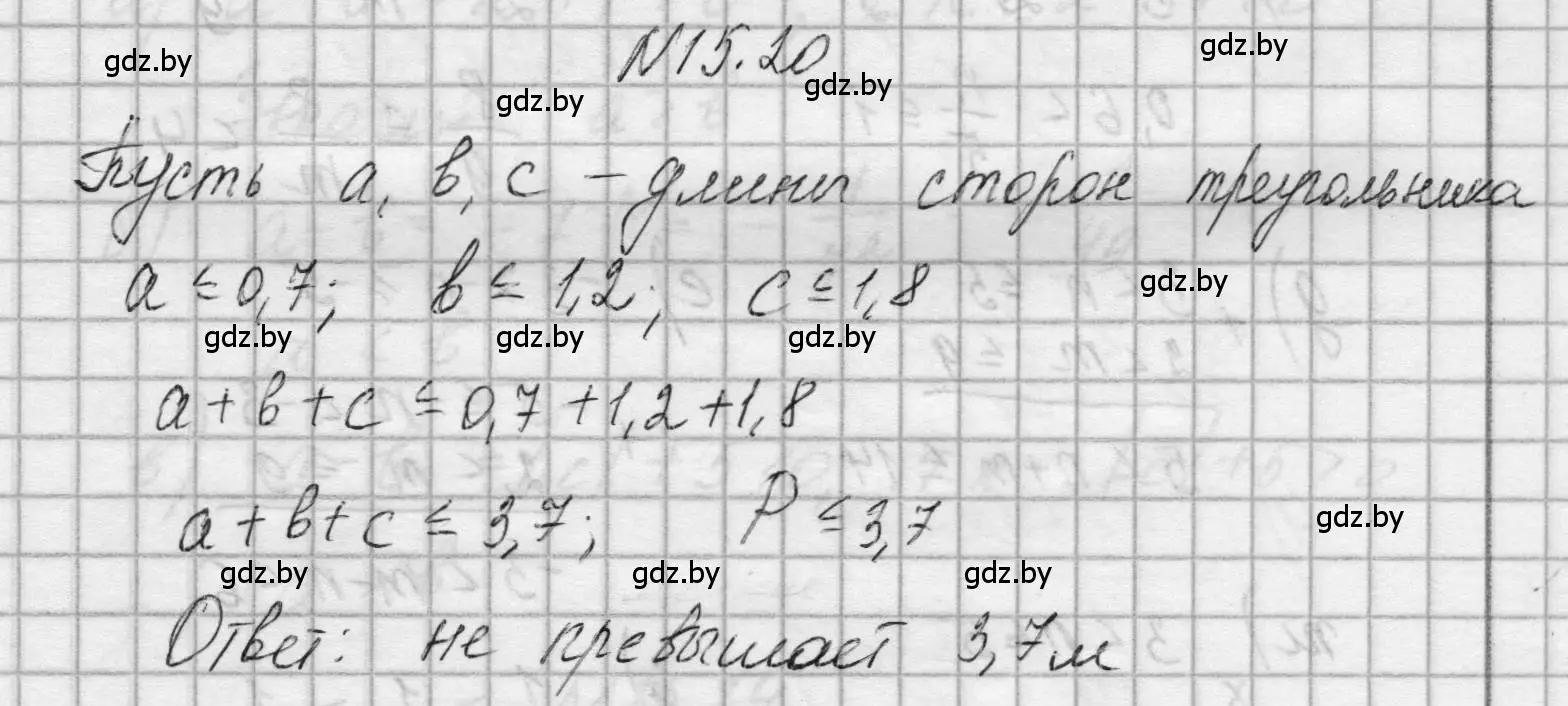 N15.20
gdz.by gdz.by
gdz.by gdz.by
Пусть a, в, c – длины сторон треугольника
a ≤ 0,7; в ≤ 1,2; c ≤ 1,8 gdz.by
gdz.by gdz.by gdz.by
a + в + c ≤ 0,7 + 1,2 + 1,8
a + в + c ≤ 3,7; P ≤ 3,7 gdz.by
gdz.by gdz.by gdz.by
Ответ: не превышает 3,7м